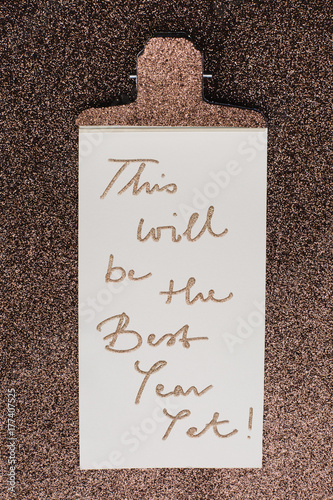 This
will
be the
Best
Year
Yet!
Adobe Stock | #177407525